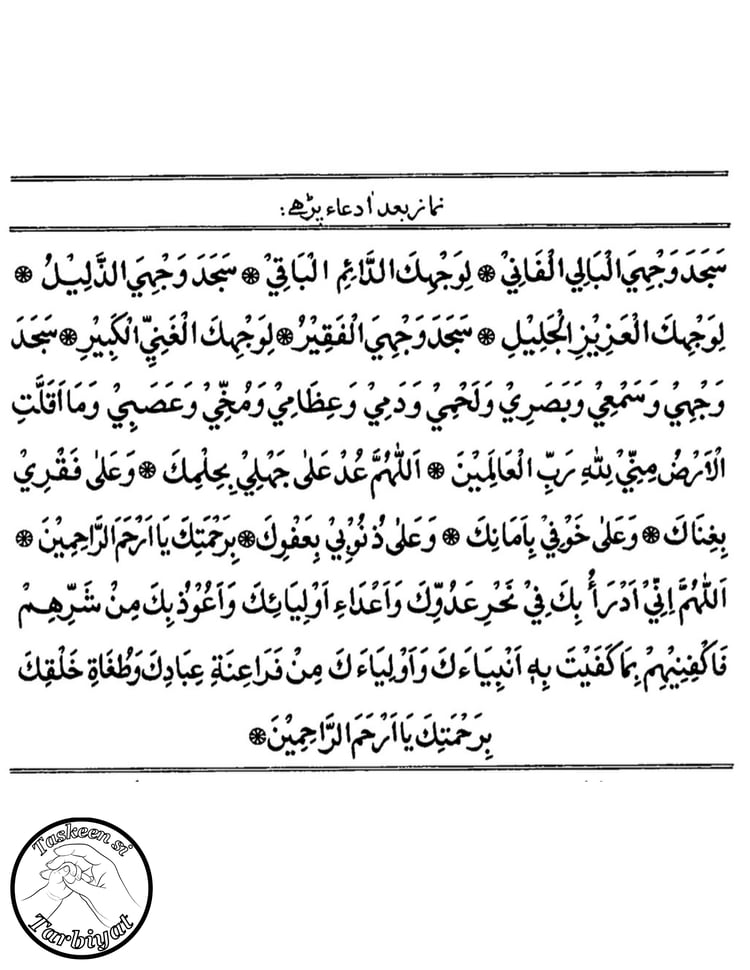 نماز بعد اٰ دعاء پڑهے:
سَجَدَ وَجْهِيَ الْبَالِي الْفَانِيْ ❋ لِوَجْهِكَ الدَّائِمِ الْبَاقِيْ ❋ سَجَدَ وَجْهِيَ الذَّلِيْلُ ❋
لِوَجْهِكَ الْعَزِيْزِ الْجَلِيْلِ ❋ سَجَدَ وَجْهِيَ الْفَقِيْرُ ❋ لِوَجْهِكَ الْغَنِيِّ الْكَبِيْرِ ❋ سَجَدَ
وَجْهِيْ وَسَمْعِيْ وَبَصَرِيْ وَلَحْمِيْ وَدَمِيْ وَعِظَامِيْ وَمُخِّيْ وَعَصَبِيْ وَمَا اَقَلَّتِ
الْاَرْضُ مِنِّيْ لِلّٰهِ رَبِّ الْعَالَمِيْنَ ❋ اَللّٰهُمَّ عُدْ عَلٰى جَهْلِيْ بِحِلْمِكَ ❋ وَعَلٰى فَقْرِيْ
بِغِنَاكَ ❋ وَعَلٰى خَوْفِيْ بِاَمَانِكَ ❋ وَعَلٰى ذُنُوْبِيْ بِعَفْوِكَ ❋ بِرَحْمَتِكَ يَا اَرْحَمَ الرَّاحِمِيْنَ ❋
اَللّٰهُمَّ اِنِّيْ اَدْرَأُ بِكَ فِيْ نَحْرِ عَدُوِّكَ وَاَعْدَاءِ اَوْلِيَائِكَ وَاَعُوْذُ بِكَ مِنْ شَرِّهِمْ
فَاكْفِنِيْهِمْ بِمَا كَفَيْتَ بِهٖ اَنْبِيَاءَكَ وَاَوْلِيَاءَكَ مِنْ فَرَاعِنَةِ عِبَادِكَ وَطُغَاةِ خَلْقِكَ
بِرَحْمَتِكَ يَا اَرْحَمَ الرَّاحِمِيْنَ ❋
Taskeen si
Tarbiyat